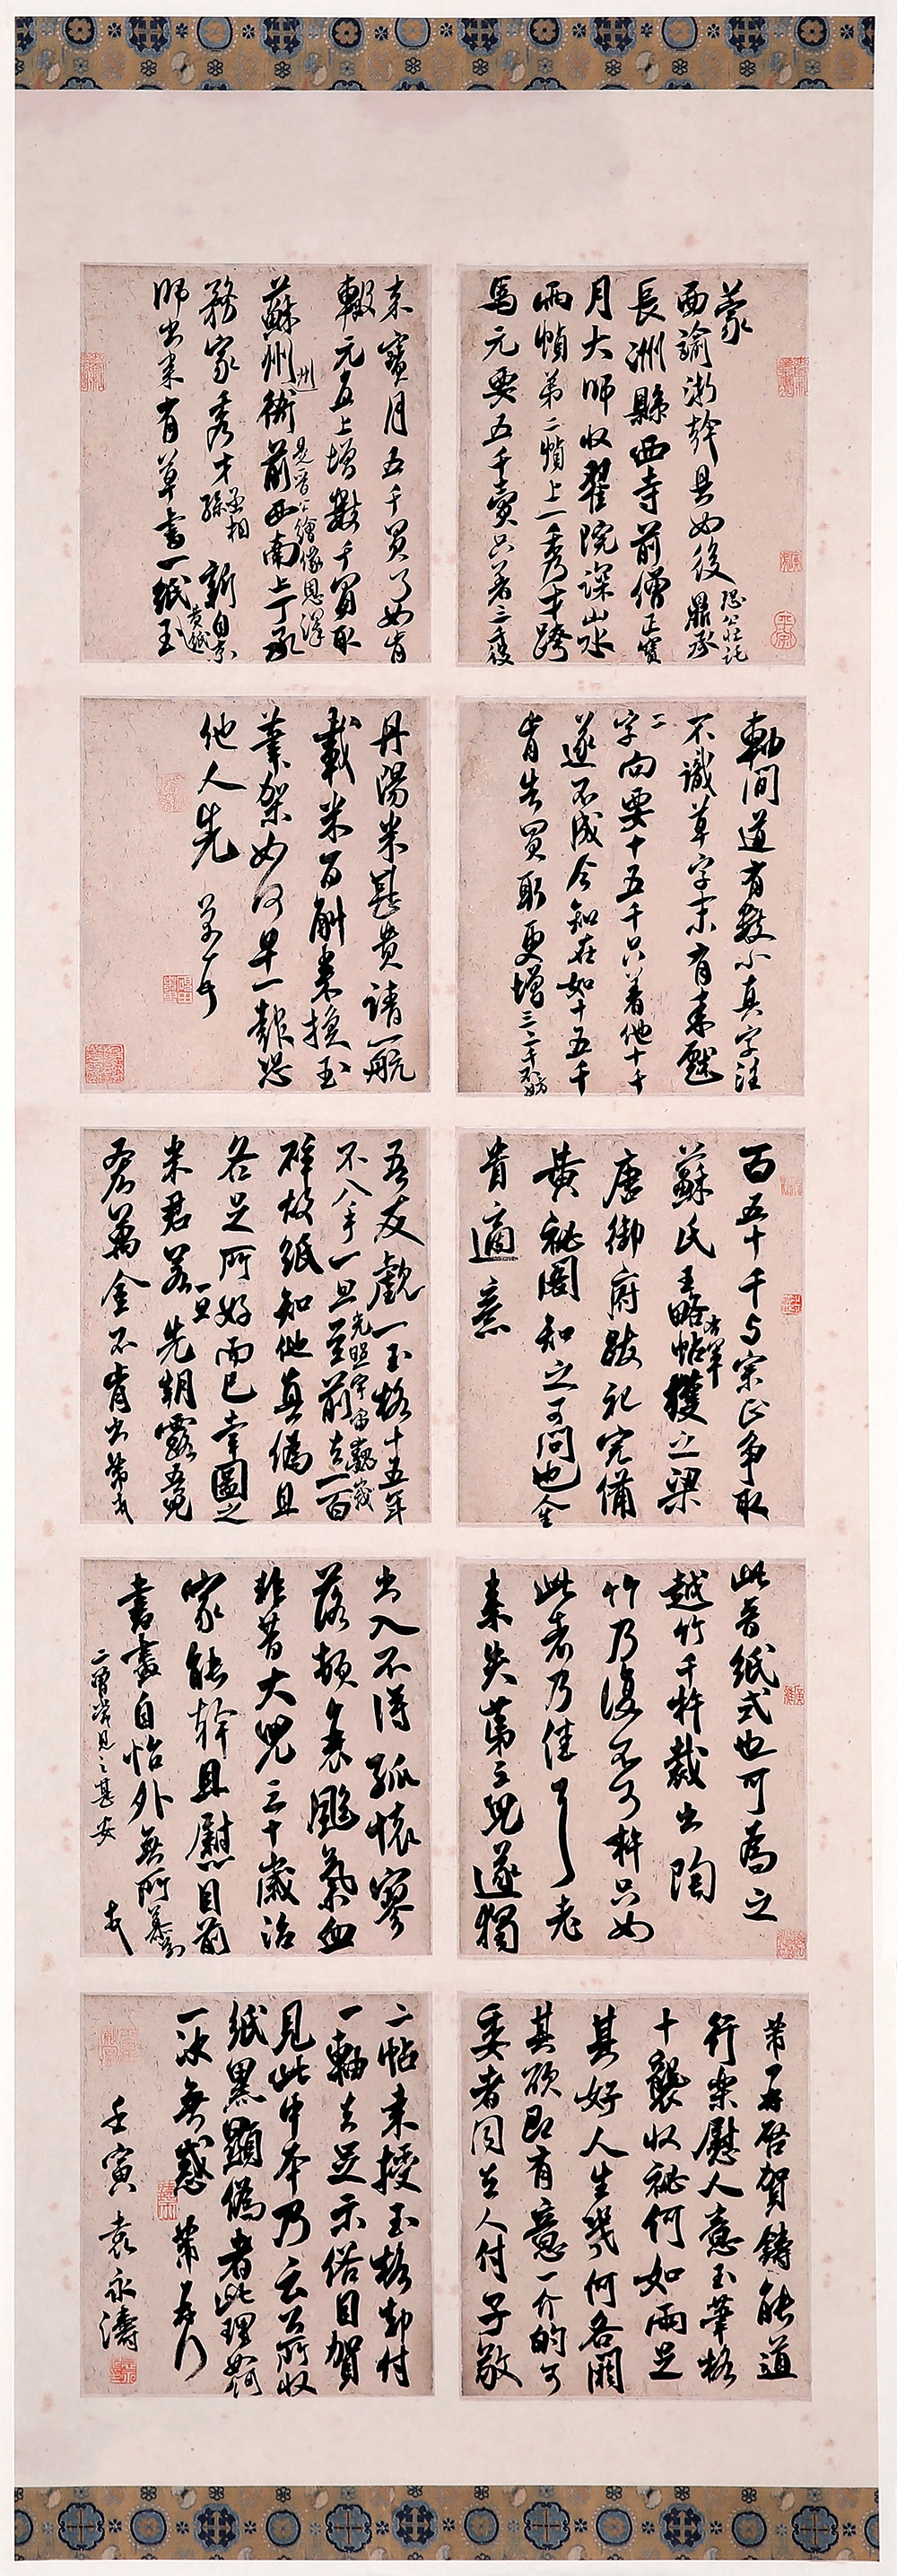 蒙
面諭浙幹具如後
恐公忙託
鼎承
長洲縣西寺前僧正寶
月大師收翟院深山水
兩幀第一幀上一秀才跨
馬元要五千賣只著三千後
來寶月五千買了如肯
輟元直上增數千買取
蘇州
州
衙前西南上丁承
是晉公繪像恩澤
務家秀才
丞相孫
新自京
師出來有草書一紙
黃紙
玉
軸間道有數小真字注
不識草字末有來戲
二
字向要十五千只著他十千
遂不成今知在如十五千
肯告買取更增三二千不妨
丹陽米甚貴請一航
載米百斛來換玉
筆架如何早一報恐
他人先
芾頓首
百五十千與宗正爭取
蘇氏王略帖
右軍
獲之梁
唐御府跋記完備
黃秘閣知之可問也金
貴適意
吾友觀一玉格十五年
不入手一旦
光照宇宙巍峩
至前去一百
碎故紙知他真偽且
各足所好而已幸圖之
米君若
一旦
先朝露吾兒
吝萬金不肯出芾頓首
此晉紙式也可為之
越竹千杵裁出陶
竹乃復不可杵只如
此者乃佳耳老
來失第三兒遂獨
出入不得孤懷寥
落頓衰颶氣血
非昔大兒三十歲治
家能幹且慰目前
書畫自怡外無所慕
二曾常見之甚安
芾
芾再啓賀鑄能道
行樂慰人意玉筆格
十襲收秘何如兩足
其好人生幾何各閼
其欲即有意一介的可
委者同去人付子敬
二帖來授玉格却付
一軸去足示俗目賀
見此中本乃云公所收
紙黑顯偽者此理如何
一決無惑芾頓首
壬寅袁永濤